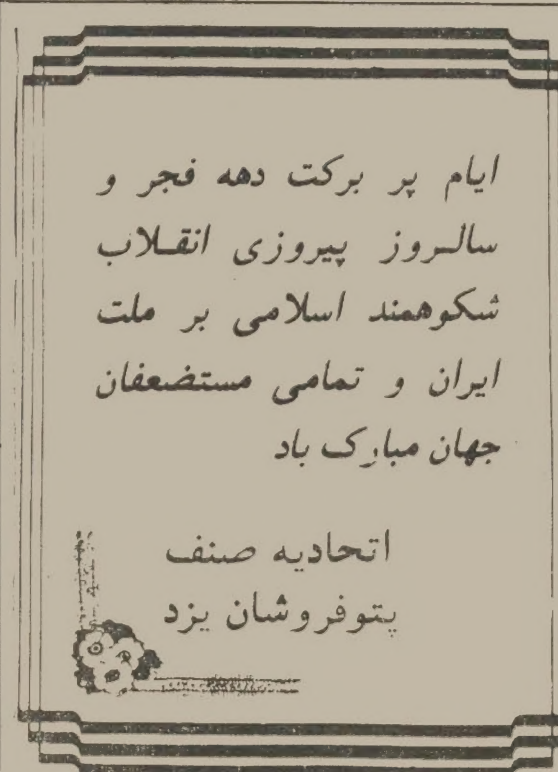 ایام پر برکت دهه فجر و
سالروز پیروزی انقلاب
شکوهمند اسلامی بر ملت
ایران و تمامی مستضعفان
جهان مبارک باد
اتحادیه صنف
پتوفروشان یزد